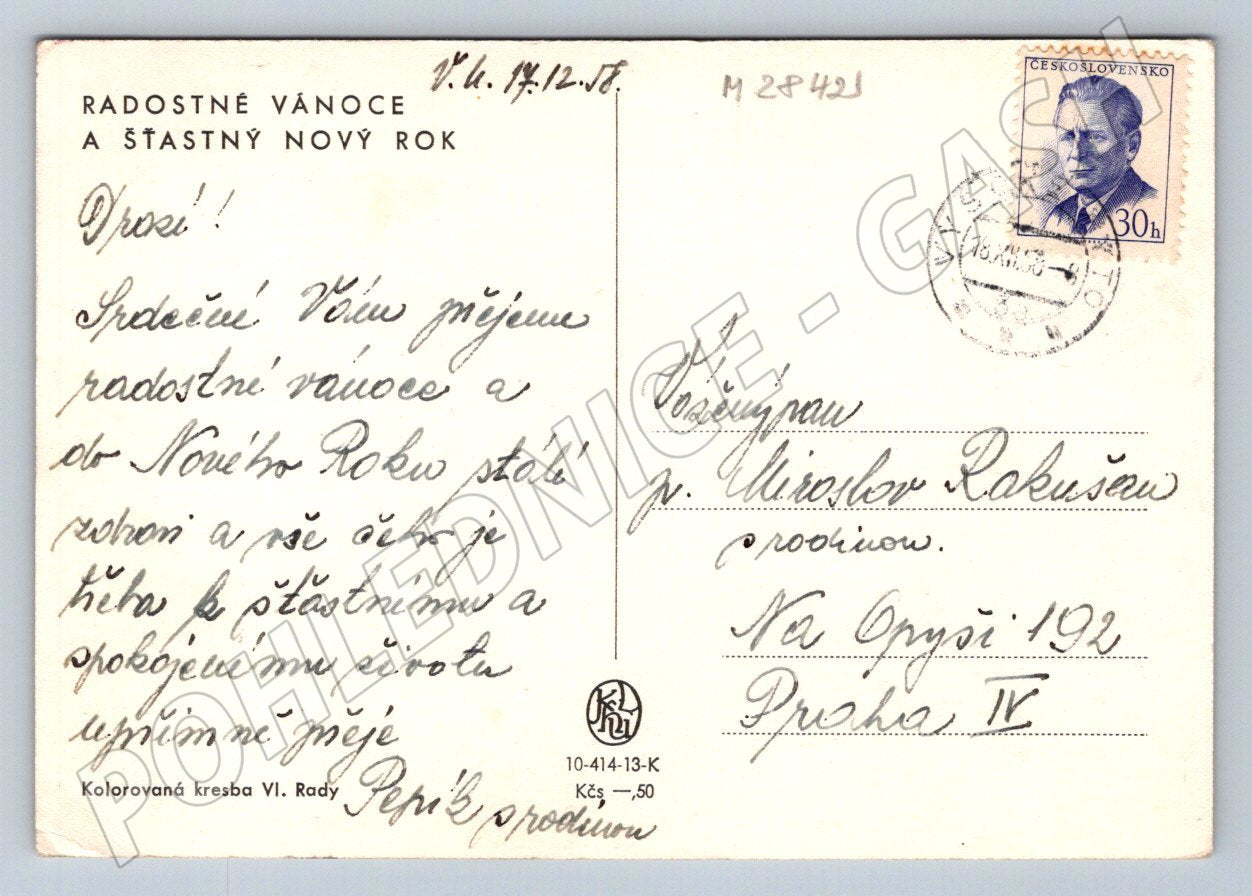 V. h. 17.12.58.
M 28421
RADOSTNÉ VÁNOCE
A ŠŤASTNÝ NOVÝ ROK
ČESKOSLOVENSKO
30h
18.XII.58
Drazí!
Srdečné Vám přejeme
radostné vánoce a
do Nového Roku stálé
zdraví a vše čeho je
třeba k šťastnému a
spokojenému životu
upřímně přeje
Pepík s rodinou
Kolorovaná kresba Vl. Rady
10-414-13-K
Kčs —,50
Vážený pan
p. Miroslav Rakušan
s rodinou.
Na Opyši 192
Praha IV
POHLEDNICE - GASH